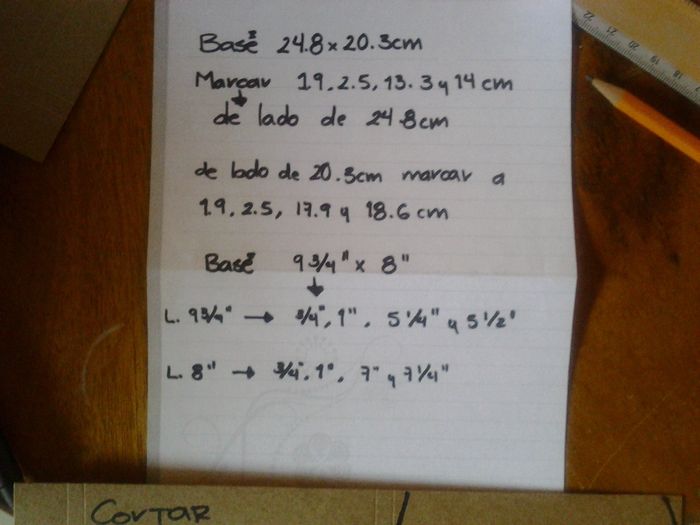 Base 24.8 x 20.3cm
Marcar 1.9, 2.5, 13.3 y 14 cm
de lado de 24.8cm
de lado de 20.3cm marcar a
1.9, 2.5, 17.9 y 18.6 cm
Base 9 3/4" x 8"
L. 9 3/4" → 3/4", 1", 5 1/4" y 5 1/2"
L. 8" → 3/4", 1", 7" y 7 1/4"
CorTAR